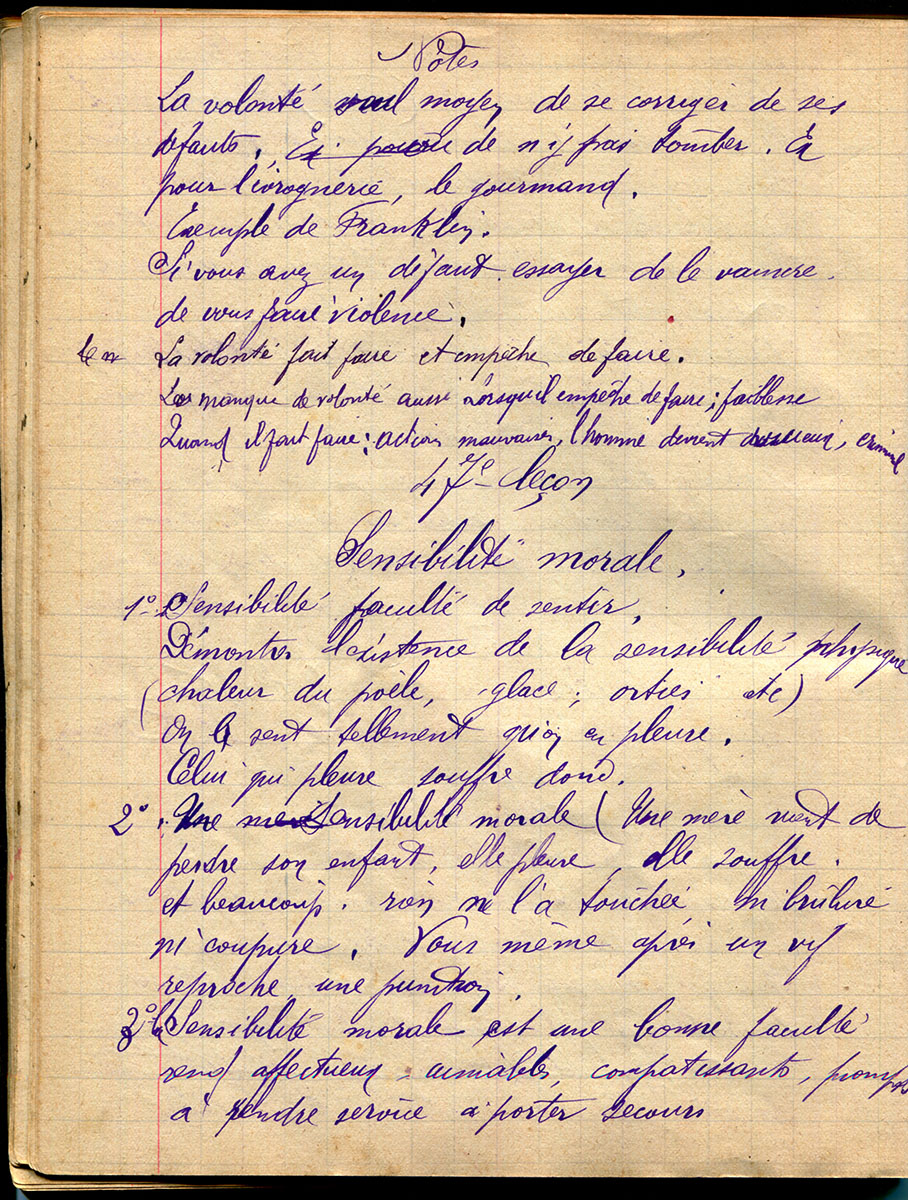 Notes
La volonté seul moyen de se corriger de ses
défauts. Ex pour de n'y pas tomber. Ex
pour l'ivrognerie, le gourmand.
Exemple de Franklin.
Si vous avez un défaut essayer de le vaincre
de vous faire violence.
La volonté fait faire et empêche de faire.
Le manque de volonté aussi Lorsqu'il empêche de faire ; faiblesse
Quand il fait faire : action mauvaise, l'homme devient criminel
47e leçon
Sensibilité morale.
1° Sensibilité faculté de sentir
Démontrer l'existence de la sensibilité physique
(chaleur du poële, glace ; orties etc)
On le sent tellement qu'on en pleure.
Celui qui pleure souffre donc.
2° Une mère Sensibilité morale (Une mère vient de
perdre son enfant, elle pleure elle souffre.
et beaucoup. rien ne l'a touchée ni brûlure
ni coupure. Vous même après un vif
reproche une punition.
3° la Sensibilité morale est une bonne faculté
rend affectueux - aimables, compatissants, prompts
à rendre service à porter secours